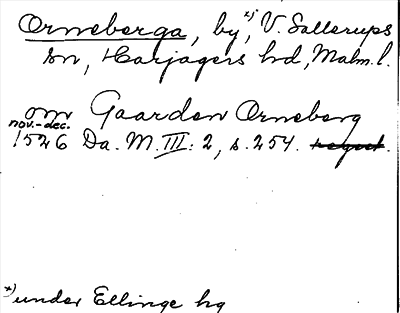 Örneberga, by, *) V. Sallerups
sn, Harjagers hd, Malm. l.
om Gaarden Örneberg
nov.-dec.
1526 Da. M. III: 2, s. 254. regest.
*) under Ellinge hg